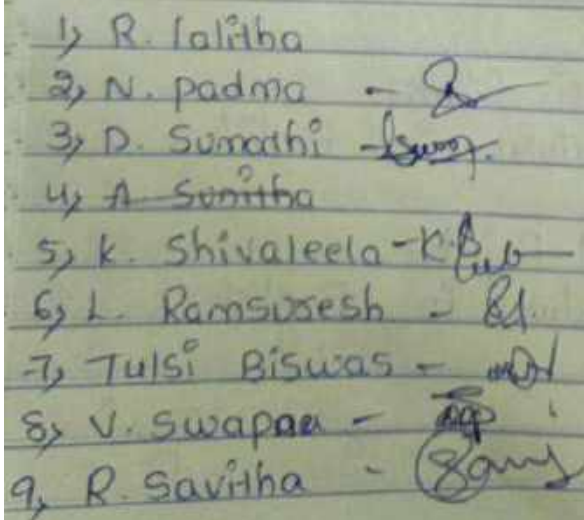 1, R. lalitha
2, N. padma -
3, D. Sumathi -
4, A Sunitha
5, K. Shivaleela - K.
6, L. Ramsuresh -
7, Tulsi Biswas -
8, V. Swapna -
9, R. Savitha -